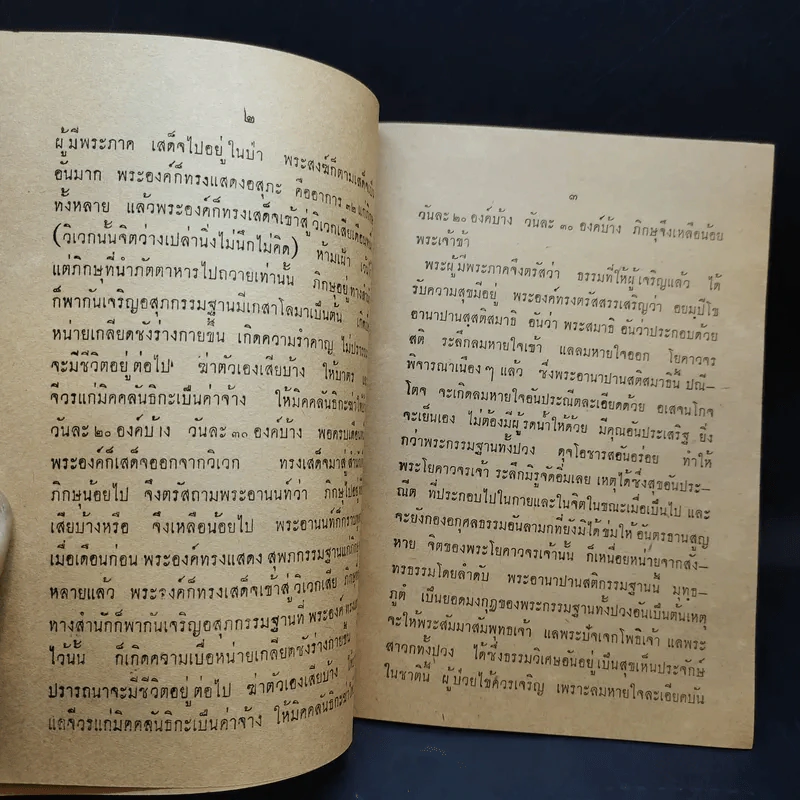 ๒
ผู้มีพระภาค เสด็จไปอยู่ในป่า พระสงฆ์ก็ตามเสด็จ
อันมาก พระองค์ก็ทรงแสดงอสุภะ คืออาการ ๓๒
ทั้งหลาย แล้วพระองค์ก็ทรงเสด็จเข้าสู่วิเวกเสียเดือน
(วิเวกนั้นจิตว่างเปล่านิ่งไม่นึกไม่คิด) ห้ามเฝ้า
แต่ภิกษุที่นำภัตตาหารไปถวายเท่านั้น ภิกษุอยู่ทาง
ก็พากันเจริญอสุภกรรมฐานมีเกสาโลมาเป็นต้น
หน่ายเกลียดชังร่างกายขึ้น เกิดความรำคาญ ไม่
จะมีชีวิตอยู่ต่อไป ฆ่าตัวเองเสียบ้าง ให้บาตร
จีวรแก่มิคคลันธิกะเป็นค่าจ้าง ให้มิคคลันธิกะฆ่า
วันละ ๒๐ องค์บ้าง วันละ ๓๐ องค์บ้าง พอครบเดือน
พระองค์ก็เสด็จออกจากวิเวก ทรงเสด็จมาสู่
ภิกษุน้อยไป จึงตรัสถามพระอานนท์ว่า ภิกษุไปอยู่
เสียบ้างหรือ จึงเหลือน้อยไป พระอานนท์ก็กราบ
เมื่อเดือนก่อน พระองค์ทรงแสดง สุพภกรรมฐานแก่ภิกษุ
หลายแล้ว พระองค์ก็ทรงเสด็จเข้าสู่วิเวกเสีย ภิกษุ
ทางสำนักก็พากันเจริญอสุภกรรมฐานที่ พระองค์ ทรง
ไว้นั้น ก็เกิดความเบื่อหน่ายเกลียดชังร่างกายขึ้น
ปรารถนาจะมีชีวิตอยู่ต่อไป ฆ่าตัวเองเสียบ้าง ให้
แลจีวรแก่มิคคลันธิกะเป็นค่าจ้าง ให้มิคคลันธิกะฆ่า
๓
วันละ ๒๐ องค์บ้าง วันละ ๓๐ องค์บ้าง ภิกษุจึงเหลือน้อย
พระเจ้าข้า
พระผู้มีพระภาคจึงตรัสว่า ธรรมที่ให้ผู้เจริญแล้ว ได้
รับความสุขมีอยู่ พระองค์ทรงตรัสสรรเสริญว่า อยมฺปิโข
อานาปานสฺสติสมาธิ อันว่า พระสมาธิ อันว่าประกอบด้วย
สติ ระลึกลมหายใจเข้า แลลมหายใจออก โยคาวจร
พิจารณาเนือง ๆ แล้ว ซึ่งพระอานาปานสติสมาธินี้ ปณี-
โตจ จะเกิดลมหายใจอันประณีตละเอียดด้วย อเสจนโกจ
จะเย็นเอง ไม่ต้องมีผู้รดน้ำให้ด้วย มีคุณอันประเสริฐ ยิ่ง
กว่าพระกรรมฐานทั้งปวง ดุจโอชารสอันอร่อย ทำให้
พระโยคาวจรเจ้า ระลึกมิรู้จืดอิ่มเลย เหตุได้ซึ่งสุขอันประ-
ณีต ที่ประกอบไปในกายและในจิตในขณะเมื่อเป็นไป และ
จะยังกองอกุศลธรรมอันลามกที่ยังมิได้ ข่มให้ อันตรธานสูญ
หาย จิตของพระโยคาวจรเจ้านั้น ก็เหนื่อยหน่ายจากสัง-
ทรธรรมโดยลำดับ พระอานาปานสติกรรมฐานนี้ มุทฺธ-
ภูตํ เป็นยอดมงกุฎของพระกรรมฐานทั้งปวงอันเป็นต้นเหตุ
จะให้พระสัมมาสัมพุทธเจ้า แลพระปัจเจกโพธิเจ้า แลพระ
สาวกทั้งปวง ได้ซึ่งธรรมวิเศษอันอยู่เป็นสุขเห็นประจักษ์
ในชาตินี้ ผู้ป่วยไข้ควรเจริญ เพราะลมหายใจละเอียดบัน